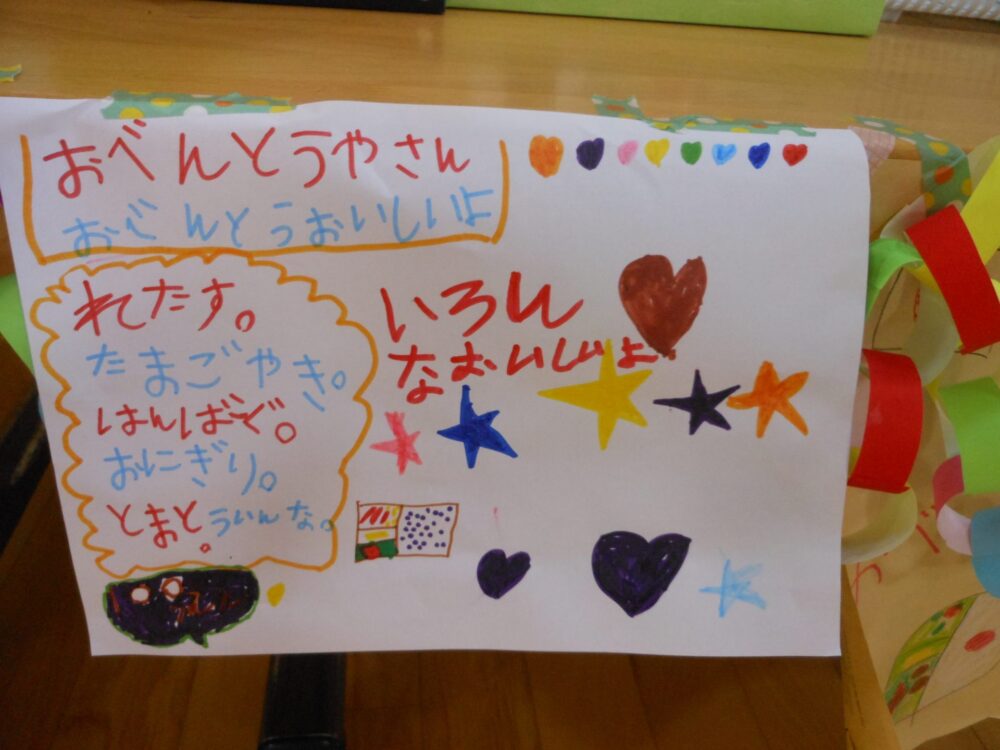 おべんとうやさん
おべんとうおいしいよ
れたす。
たまごやき。
はんばぐ。
おにぎり。
とまと。ういんな。
いろん
なおいしよ